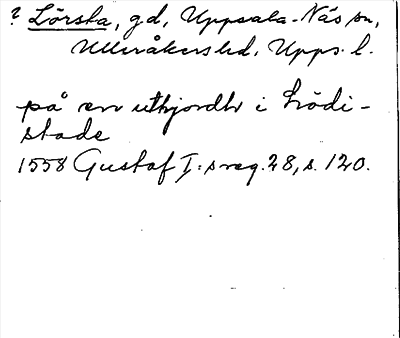 ? Lörsta, gd, Uppsala-Näs sn,
Ulleråkers hd, Upps. l.
på en uthjordh i Lödi-
stade
1558 Gustaf I:s reg. 28, s. 120.